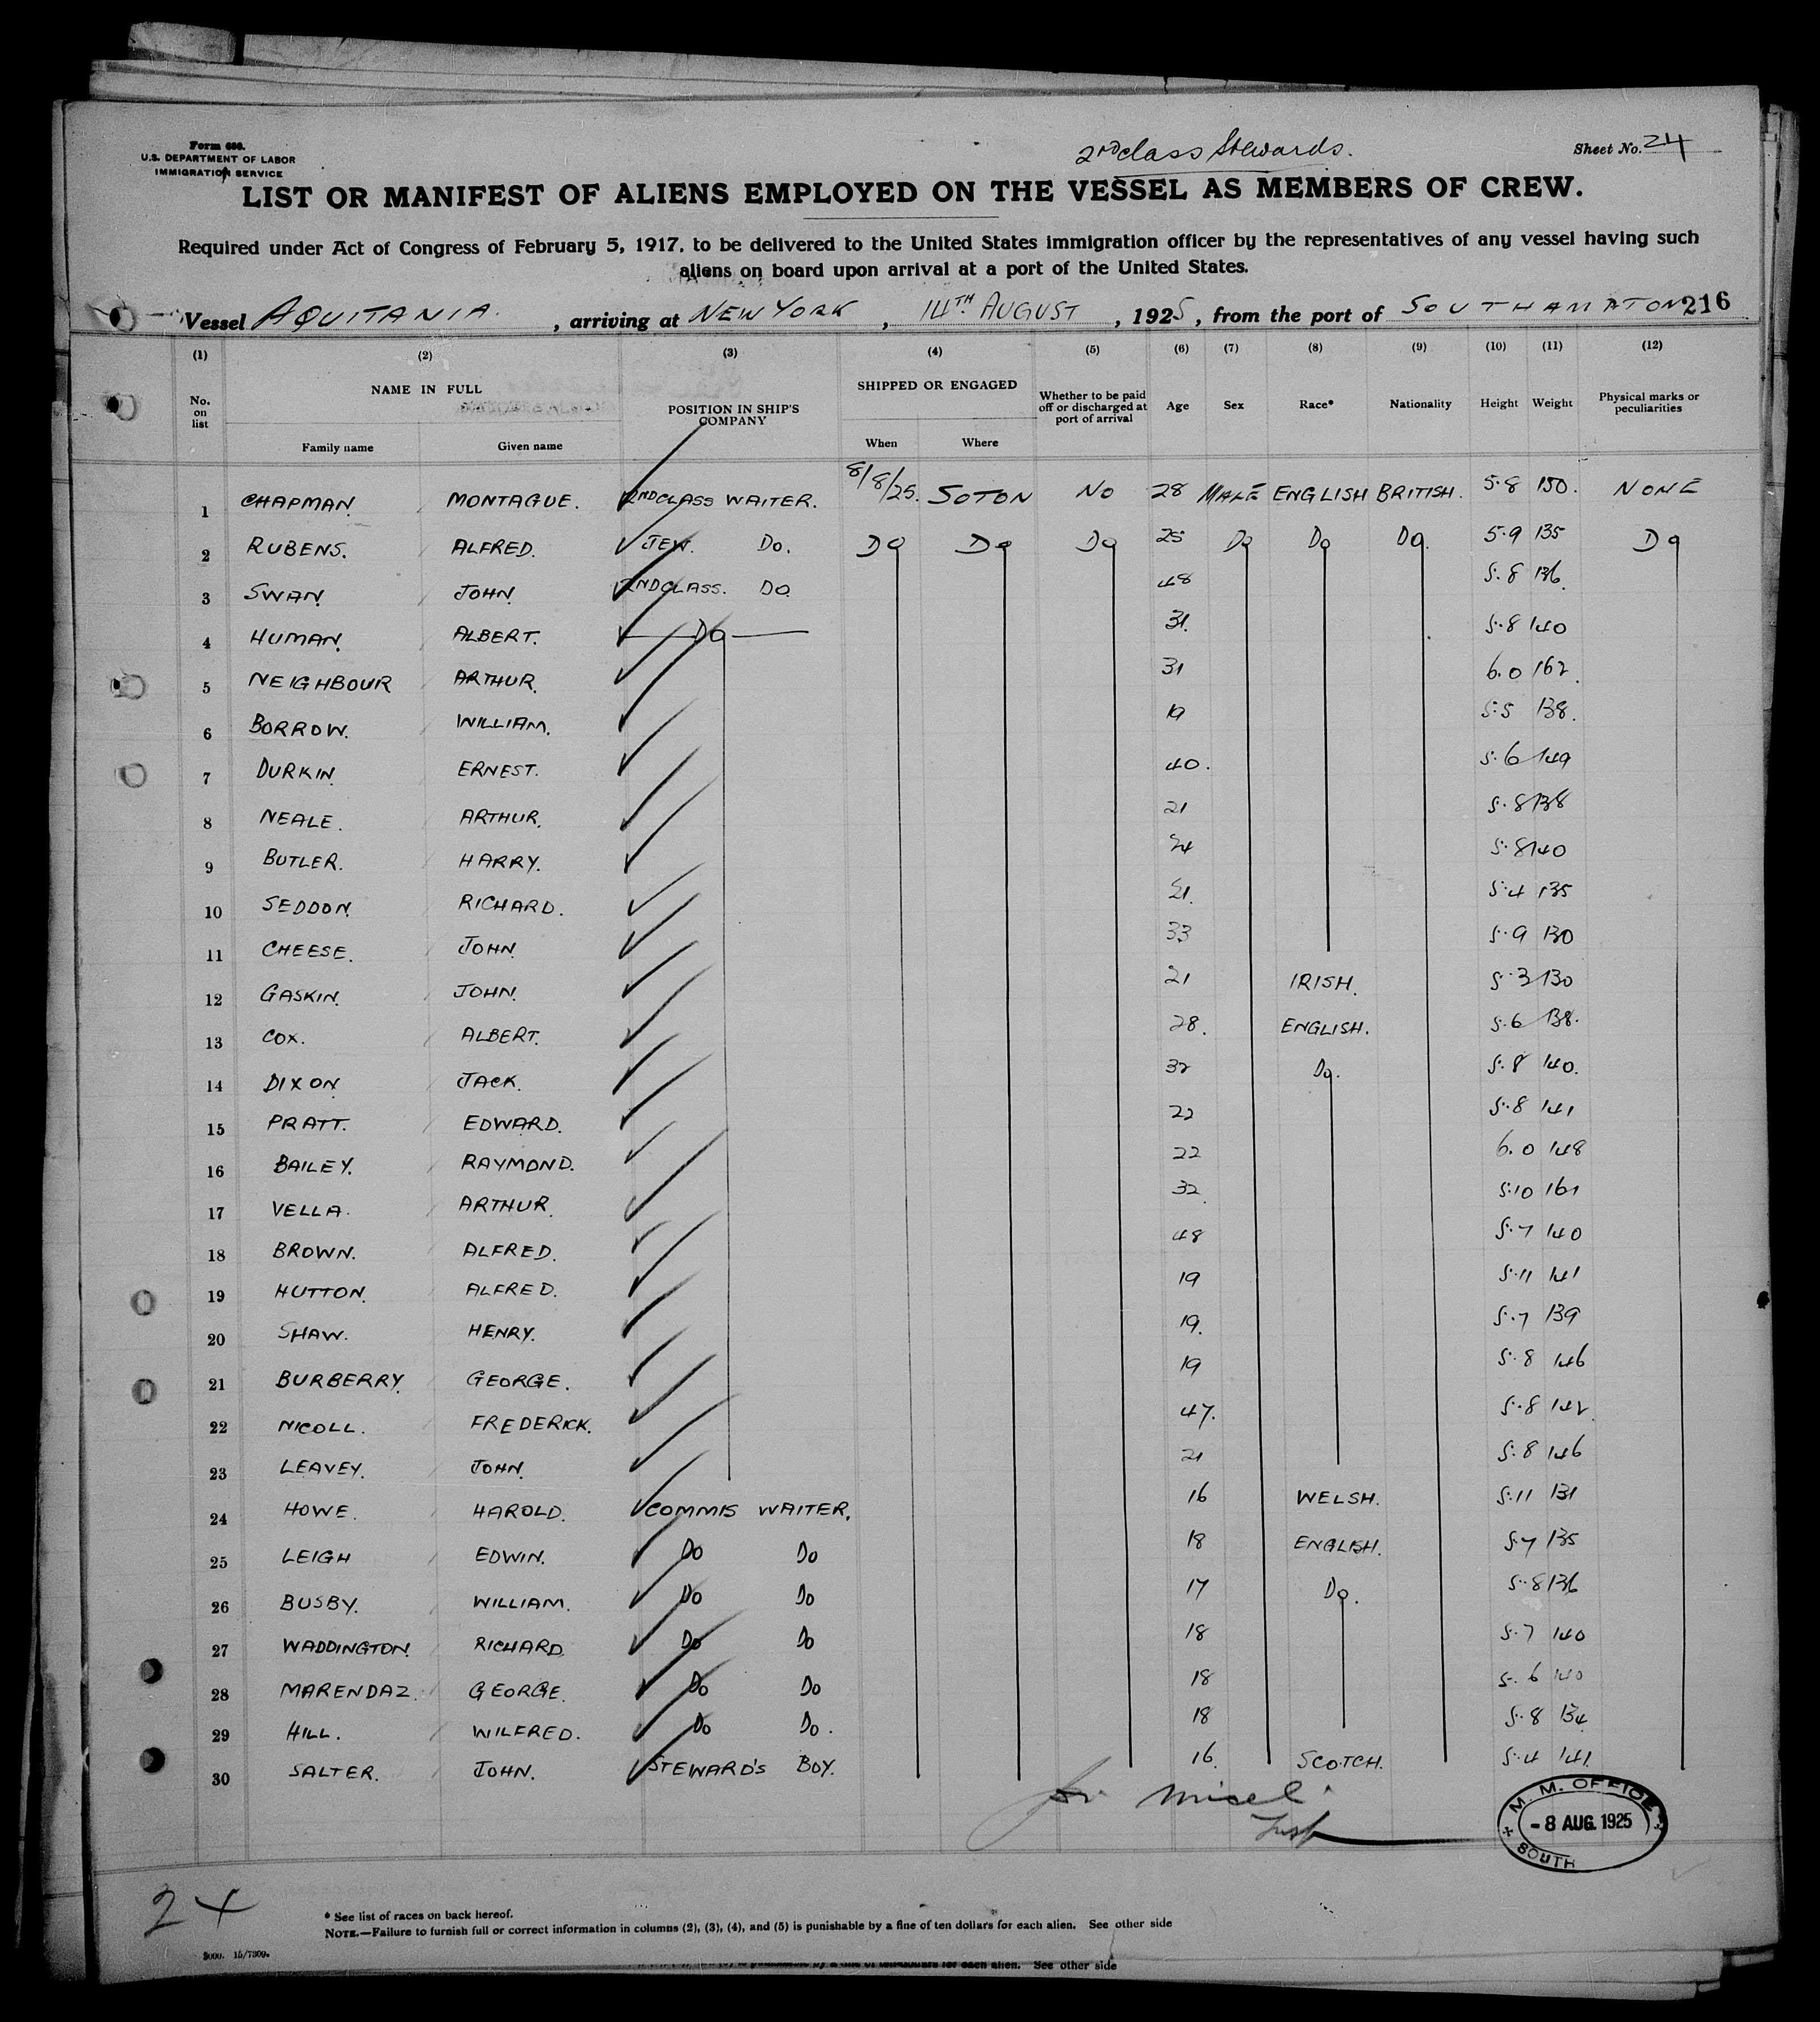 Form 686.
U.S. DEPARTMENT OF LABOR
IMMIGRATION SERVICE
2nd class Stewards.
Sheet No. 24
LIST OR MANIFEST OF ALIENS EMPLOYED ON THE VESSEL AS MEMBERS OF CREW.
Required under Act of Congress of February 5, 1917, to be delivered to the United States immigration officer by the representatives of any vessel having such
aliens on board upon arrival at a port of the United States.
Vessel AQUITANIA. , arriving at NEW YORK , 14TH AUGUST , 1925, from the port of SOUTHAMPTON 216
(1) (2) (3) (4) (5) (6) (7) (8) (9) (10) (11) (12)
No. on list NAME IN FULL Family name Given name POSITION IN SHIP'S COMPANY SHIPPED OR ENGAGED When Where Whether to be paid off or discharged at port of arrival Age Sex Race* Nationality Height Weight Physical marks or peculiarities
1 CHAPMAN. MONTAGUE. 2ND CLASS WAITER. 8/8/25. SOTON NO 28 MALE ENGLISH BRITISH. 5.8 150. NONE
2 RUBENS. ALFRED. JEW. DO. DO DO DO 25 DO DO DO. 5.9 135 DO
3 SWAN. JOHN. 2ND CLASS. DO. 48 5.8 136.
4 HUMAN. ALBERT. DO 31. 5.8 140
5 NEIGHBOUR ARTHUR. 31 6.0 162.
6 BORROW. WILLIAM. 19 5.5 138.
7 DURKIN. ERNEST. 40. 5.6 149
8 NEALE. ARTHUR. 21 5.8 138
9 BUTLER. HARRY. 24 5.8 140
10 SEDDON. RICHARD. 21. 5.4 135
11 CHEESE. JOHN. 33 5.9 130
12 GASKIN. JOHN. 21 IRISH. 5.3 130
13 COX. ALBERT. 28. ENGLISH. 5.6 138.
14 DIXON. JACK. 32 DO. 5.8 140.
15 PRATT. EDWARD. 22 5.8 141
16 BAILEY. RAYMOND. 22 6.0 148
17 VELLA. ARTHUR. 32. 5.10 161
18 BROWN. ALFRED. 48 5.7 140
19 HUTTON. ALFRED. 19 5.11 141
20 SHAW. HENRY. 19. 5.7 139
21 BURBERRY. GEORGE. 19 5.8 146
22 NICOLL. FREDERICK. 47. 5.8 142.
23 LEAVEY. JOHN. 21 5.8 146
24 HOWE. HAROLD. COMMIS WAITER. 16 WELSH. 5.11 131
25 LEIGH EDWIN. DO DO 18 ENGLISH. 5.7 135
26 BUSBY. WILLIAM. DO DO 17 DO. 5.8 136
27 WADDINGTON. RICHARD. DO DO 18 5.7 140
28 MARENDAZ. GEORGE. DO DO 18 5.6 140
29 HILL. WILFRED. DO DO. 18 5.8 134
30 SALTER. JOHN. STEWARD'S BOY. 16. SCOTCH. 5.4 141.
M. M. OFFICE
- 8 AUG. 1925
SOUTH
24
* See list of races on back hereof.
NOTE.—Failure to furnish full or correct information in columns (2), (3), (4), and (5) is punishable by a fine of ten dollars for each alien. See other side
3000. 15/7309.
is punishable by a fine of ten dollars for each alien. See other side